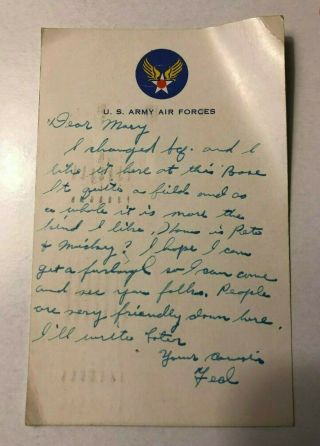 U. S. ARMY AIR FORCES
Dear Mary
I changed bq. and I
like it here at this Base
It quite a field and as
a whole it is more the
kind I like. How is Pete
& Mickey? I hope I can
get a furlough so I can come
and see you folks. People
are very friendly down here.
I'll write later
Your cousin